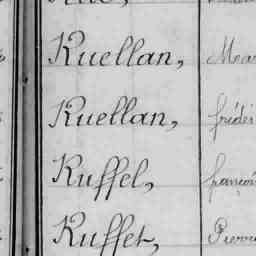 Ruellan,
Ruellan, frédér
Ruffel, françoi
Ruffet, Pierre